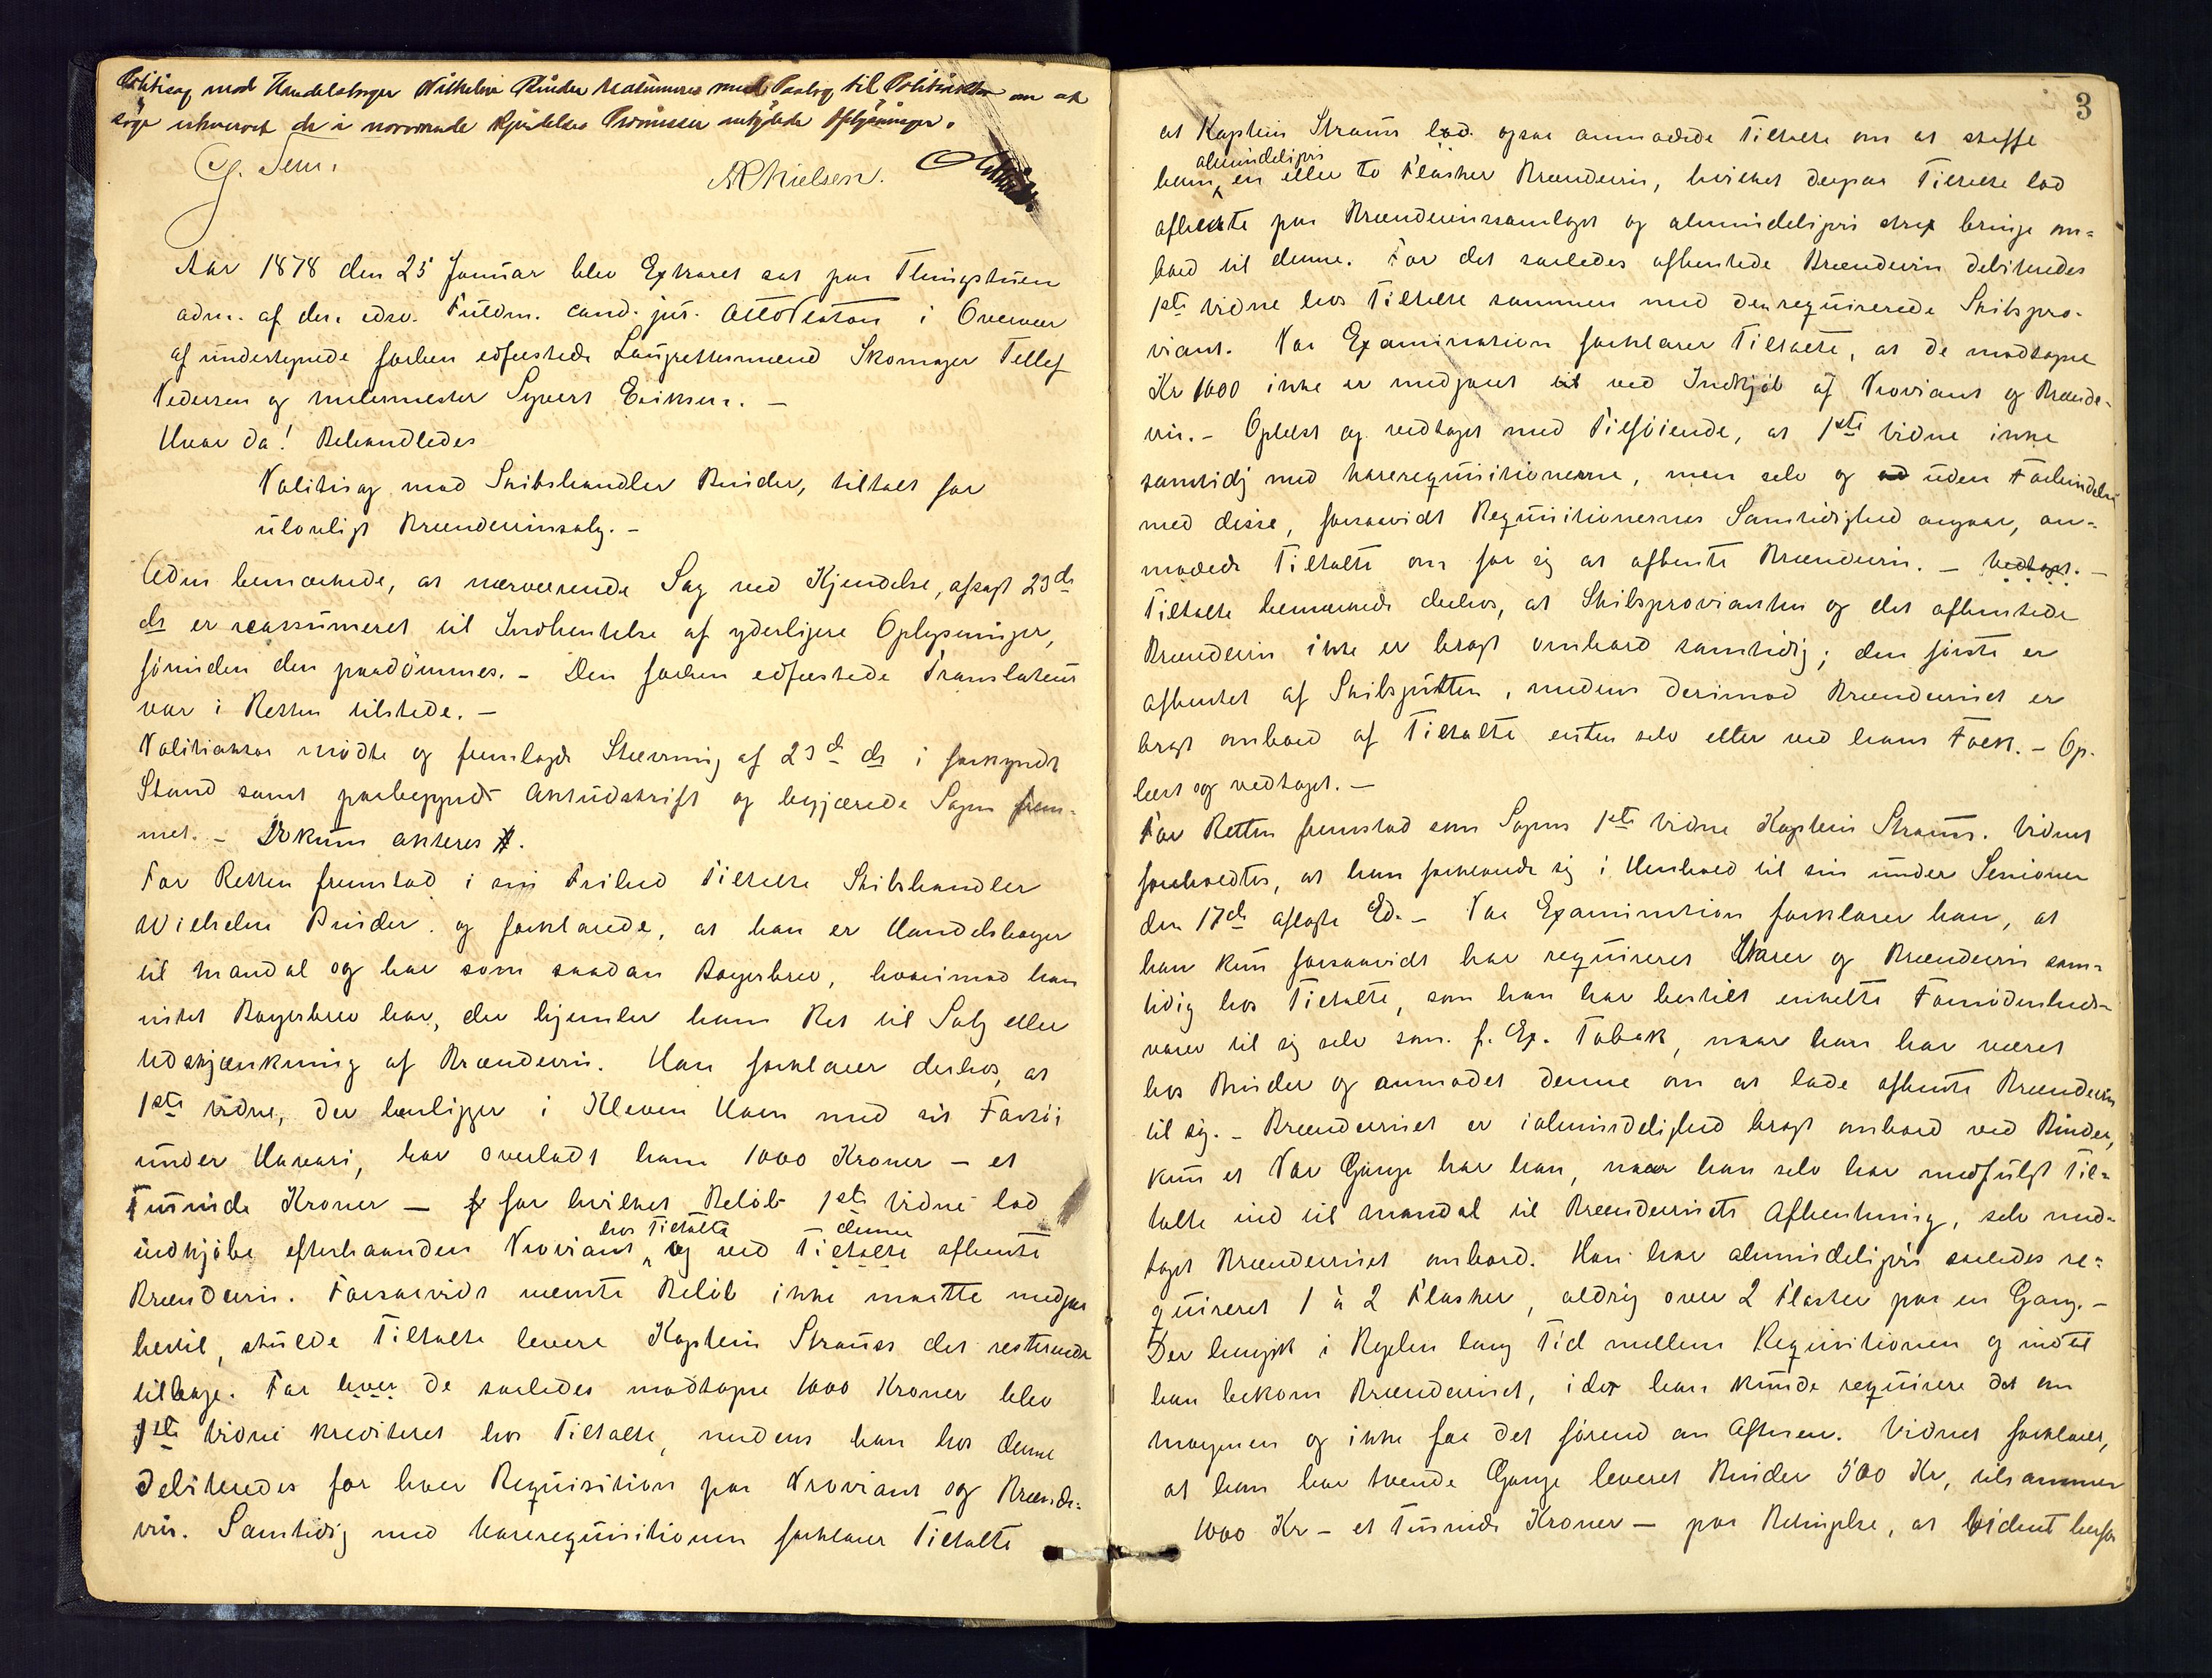 Politisag mod Handelsborger Wilhelm Rinder reassumeres med Paalæg til Politiaktor om at
søge erhvervet de i nærværende Kjendelses Præmisser antydede Oplysninger.
G. Sem. A P Nielsen.
Aar 1878 den 25 Januar blev Extraret sat paa Thingstuen
adm. af den edsv. Fuldm. cand. jur. Otto Platou i Overvær
af undertegnede forhen edfæstede Laugrettesmænd Skomager Tellef
Pedersen og Malermester Syvert Eriksen. –
Hvor da! Behandledes
Politisag mod Skibshandler Rinder, tiltalt for
ulovligt Brændevinssalg. –
Adm bemærkede, at nærværende Sag ved Kjendelse, afsagt 23de
ds er reassumeret til Indhentelse af yderligere Oplysninger,
førinden den paadømmes. – Den forhen edfæstede Translateur
var i Retten tilstede. –
Politiaktor mødte og fremlagde Stævning af 23d ds i forkyndt
Stand samt paabegyndt Aktudskrift og begjærede Sagen frem-
met. – Dokum akteres.
For Retten fremstod i sin Frihed Tiltalte Skibshandler
Wilhelm Rinder og forklarede, at han er Handelsborger
til Mandal og har som saadan Borgerbrev, hvorimod han
intet Borgerbrev har, der hjemler ham Ret til Salg eller
Udskjænkning af Brændevin. Han forklarer derhos, at
1ste Vidne, der henligger i Kleven Havn med sit Fartøi
under Havari, har overladt ham 1000 Kroner – et
Tusinde Kroner – for hvilket Beløb 1ste Vidne lod
hos Tiltalte – denne
indkjøbe efterhaanden Proviant, og ved Tiltalte afhente
Brændevin. Forsaavidt nævnte Beløb ikke maatte medgaa
hertil, skulde Tiltalte levere Kaptein Strauss det resterende
tilbage. For hver de saaledes modtagne 1000 Kroner blev
1ste Vidne krediteret hos Tiltalte, medens han hos denne
debiteredes for hver Requisition paa Proviant og Brænde-
vin. Samtidig med Varerequisitionen forklarer Tiltalte
3
at Kaptein Strauss lod ogsaa anmodede Tiltalte om at skaffe
almindeligvis
ham en eller to Flasker Brændevin, hvilket derpaa Tiltalte lod
afhente paa Brændevinssamlaget og almindeligvis strax bringe om-
bord til denne. For det saaledes afhentede Brændevin debiteredes
1ste Vidne hos Tiltalte sammen med den requirerede Skibspro-
viant. Paa Examination forklarer Tiltalte, at de modtagne
Kr 1000 ikke er medgaaet til ved Indkjøb af Proviant og Brænde-
vin. – Oplæst og vedtaget med Tilføiende, at 1ste Vidne ikke
samtidig med Varerequisitionerne, men selv og uden Forbindelse
med disse, forsaavidt Requisitionernes Samtidighed angaar, an-
modede Tiltalte om for sig at afhente Brændevin. – Vedtaget. –
Tiltalte bemærkede derhos, at Skibsprovianten og det afhentede
Brændevin ikke er bragt ombord samtidig; den første er
afhentet af Skibsgutten, medens derimod Brændevinet er
bragt ombord af Tiltalte enten selv eller ved hans Folk. – Op-
læst og vedtaget. –
For Retten fremstod som Sagens 1ste Vidne Kaptein Strauss. Vidnet
foreholdtes, at han forklarede sig i Henhold til sin under Sessionen
den 17de aflagte Ed. – Paa Examination forklarer han, at
han kun forsaavidt har requireret Varer og Brændevin sam-
tidig hos Tiltalte, som han har bestilt enkelte Fornødenheds-
varer til sig selv som f. Ex. Tobak, naar han har været
hos Rinder og anmodet denne om at lade afhente Brændevin
til sig. – Brændevinet er i almindelighed bragt ombord ved Rinder,
kun et Par Gange har han, naar han selv har medfulgt Til-
talte ind til Mandal til Brændevinets Afhentning, selv med-
taget Brændevinet ombord. Han har almindeligvis saaledes re-
quireret 1 à 2 Flasker, aldrig over 2 Flasker paa en Gang. –
Der hengik i Regelen lang Tid mellem Requisitionen og indtil
han bekom Brændevinet, idet han kunde requirere det om
Morgenen og ikke faa det førend om Aftenen. Vidnet forklarer,
at han har tvende Gange leveret Rinder 500 Kr, tilsammen
1000 Kr – et Tusinde Kroner – paa Betingelse, at Vidnet herfor